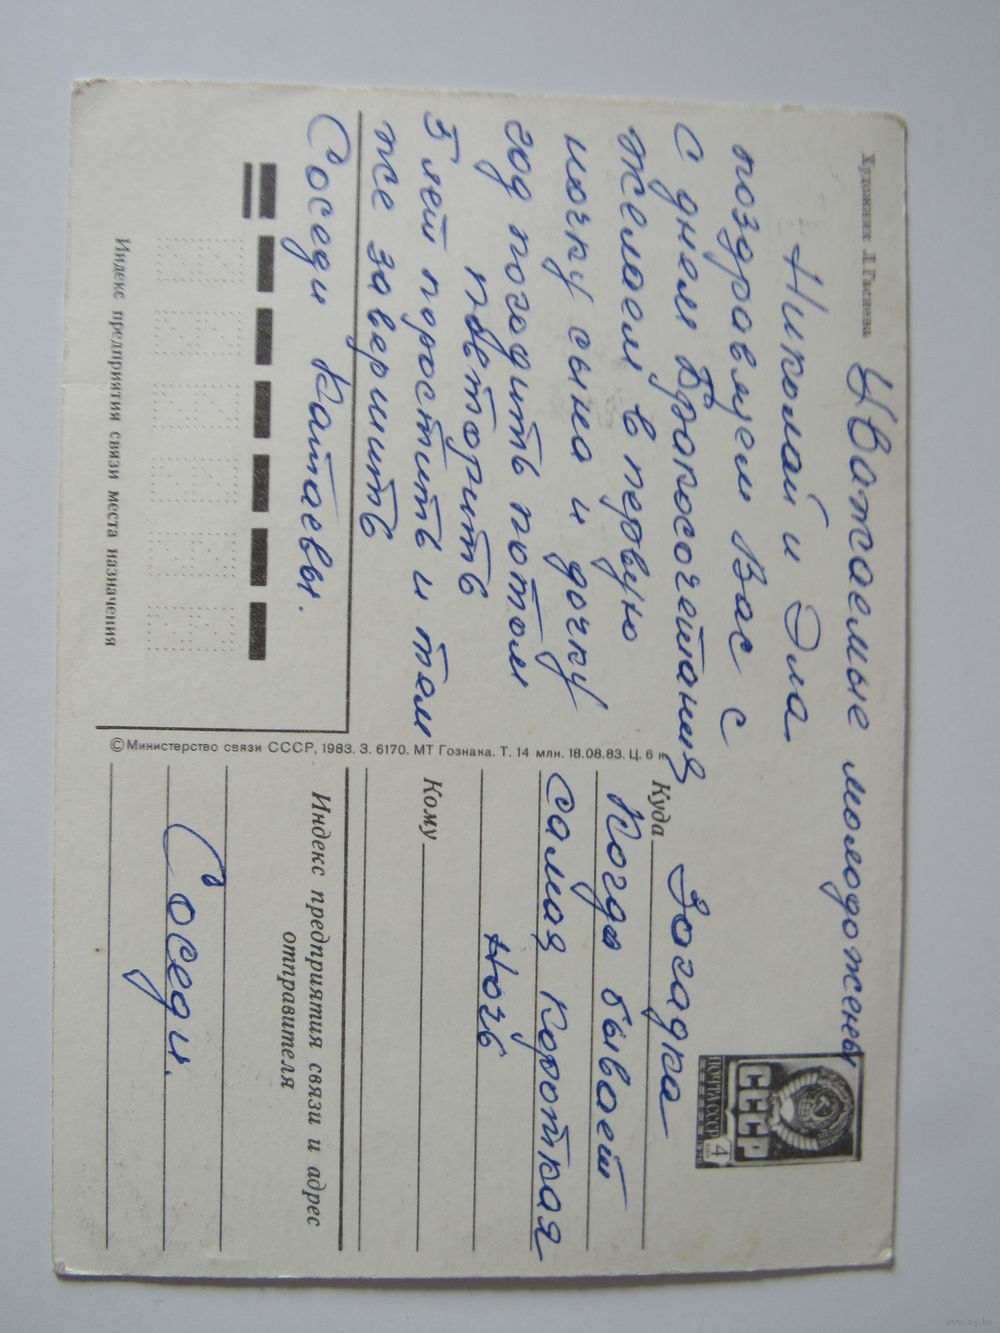 Художник Л Гасиева
Цважаемые молодожены
Николай и Эла
поздравляем Вас с
с днем Бракосочетания
желаем в первую
ночку сына и дочку
год погодить потом
повторить
5 лет простить и там
же завершить
Соседи Катаевы.
Индекс предприятия связи места назначения
© Министерство связи СССР, 1983. З. 6170. МТ Гознака. Т. 14 млн. 18.08.83. Ц. 6 к.
ПОЧТА СССР
4
СССР
Куда Загадка
Когда бывает
самая короткая
Ночь
Кому
Индекс предприятия связи и адрес
отправителя
Соседи.
www.ay.by